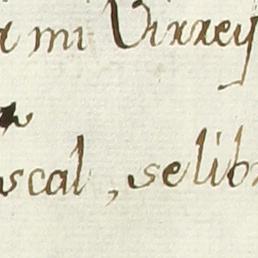 mi Virrey
scal, se lib